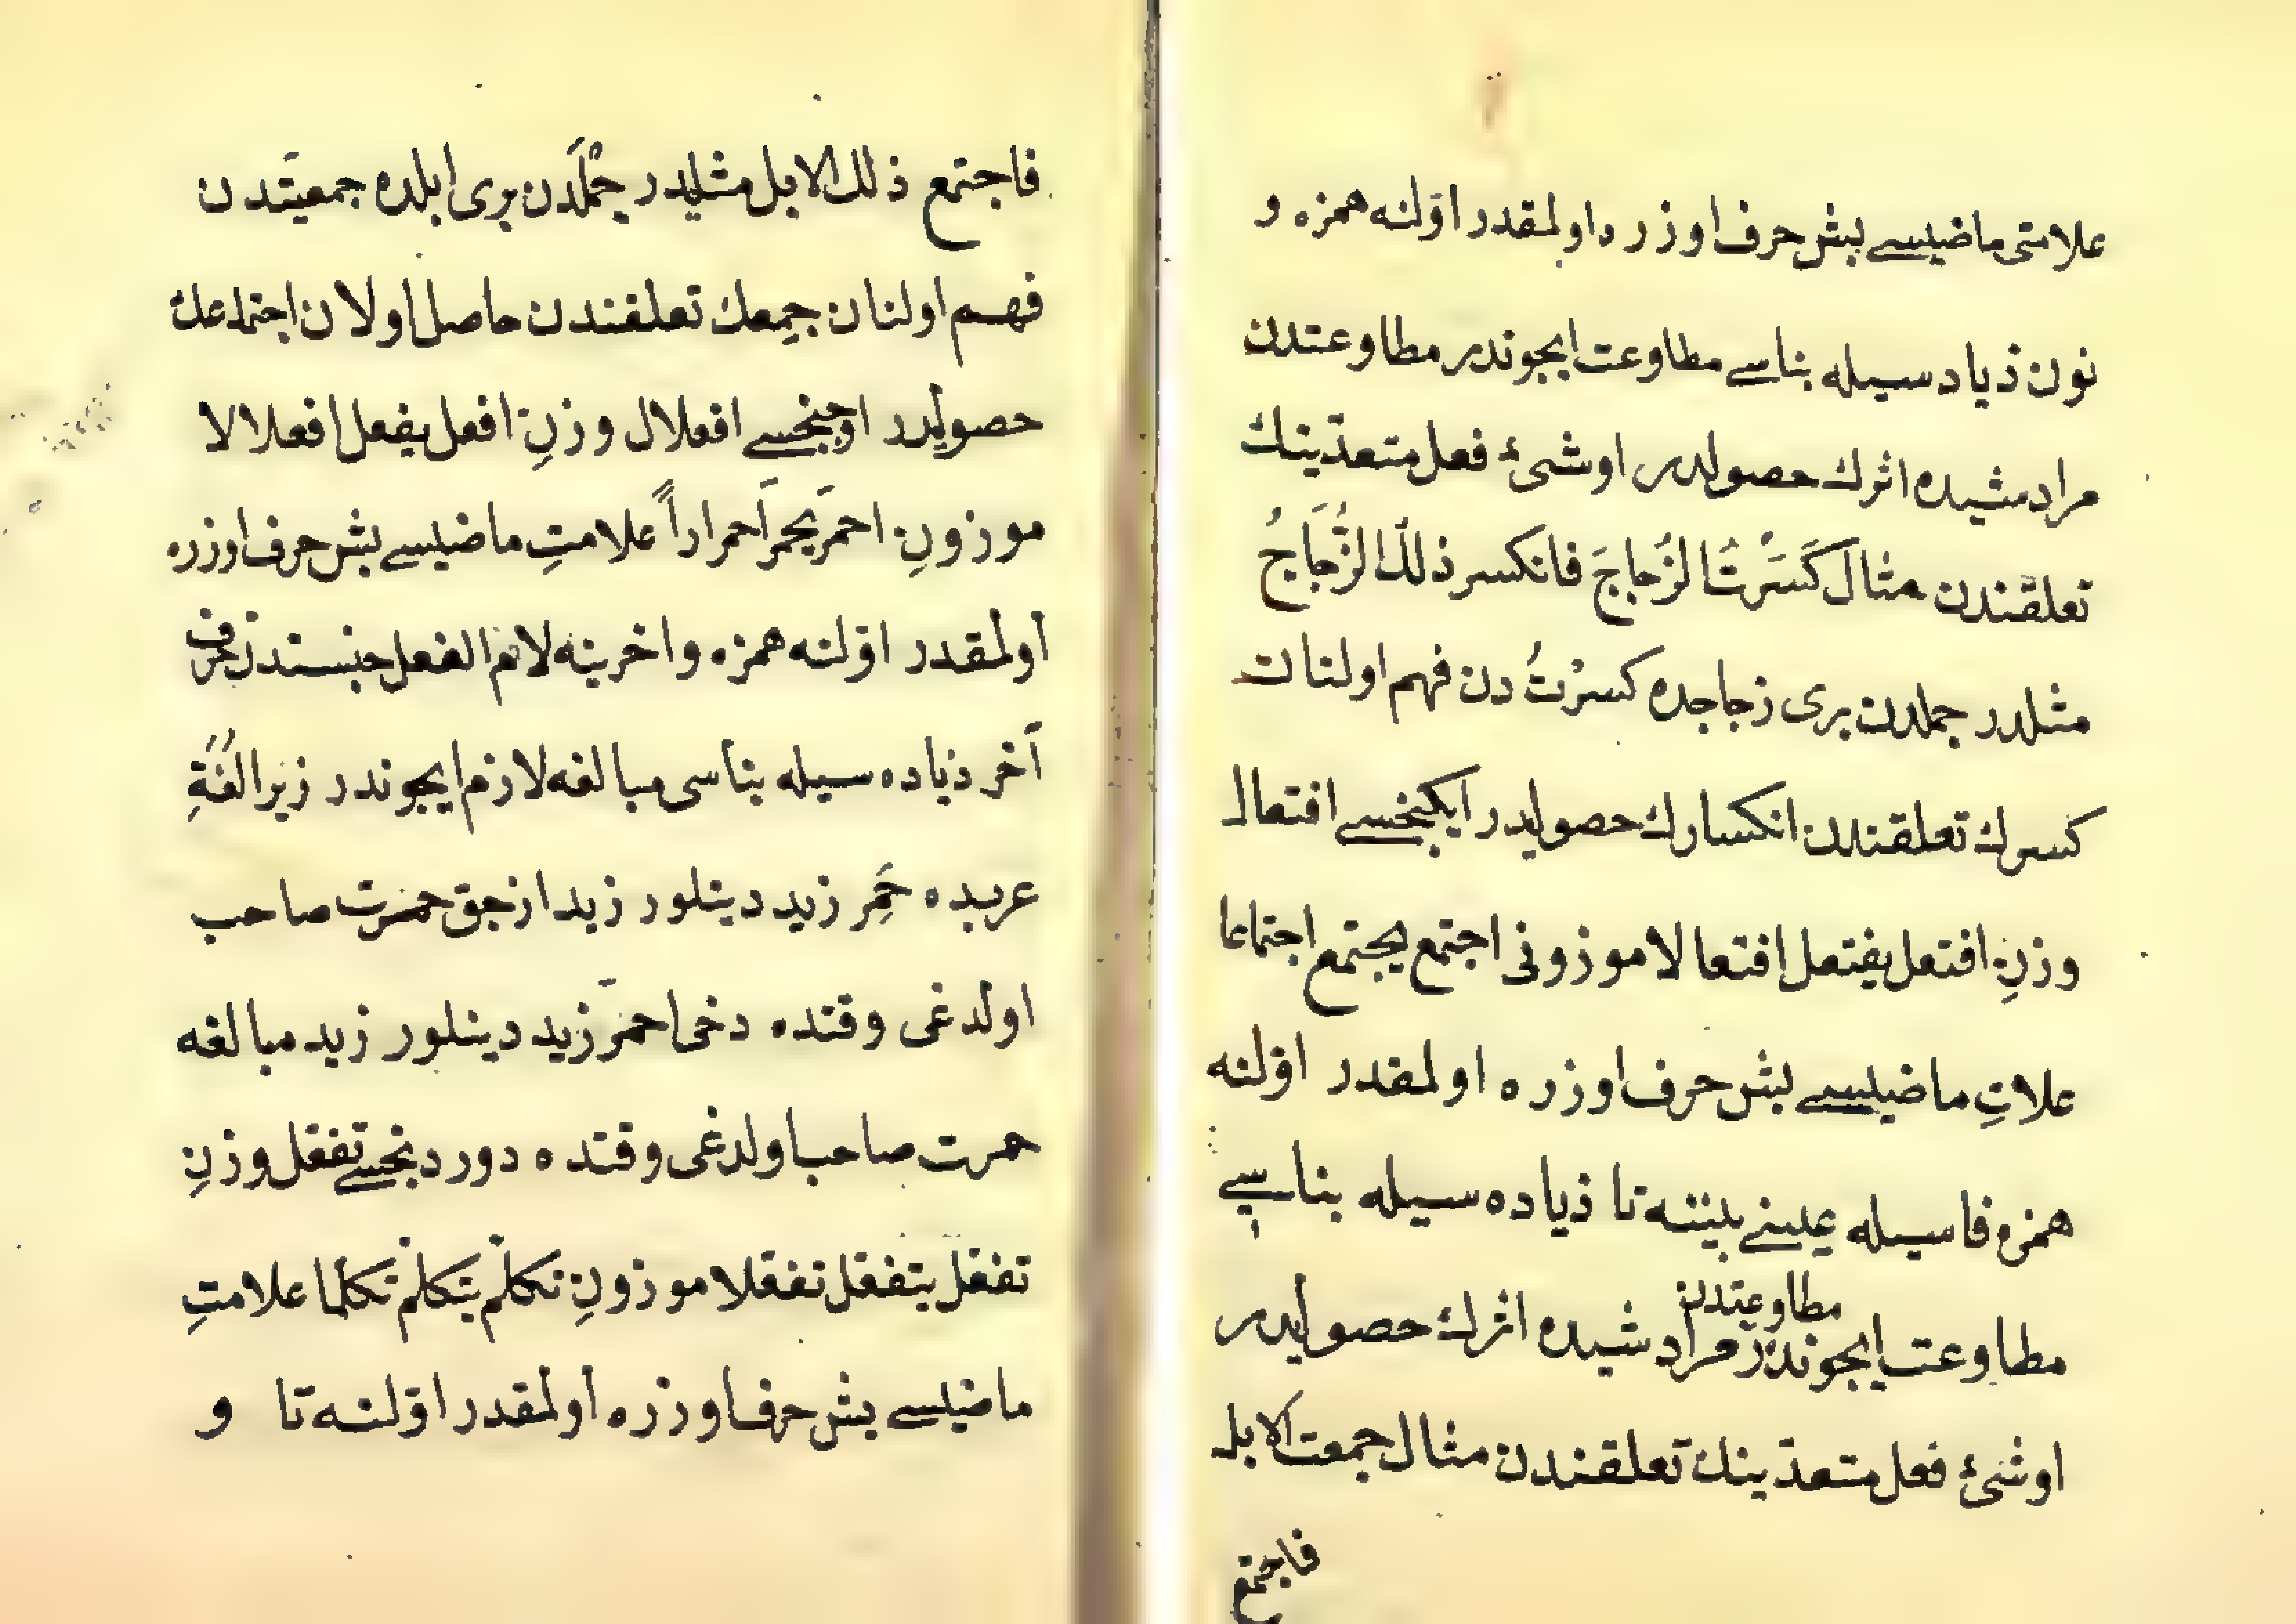 علامتی ماضیسے بش حرف اوزره اولمقدر اوّلنه همزه و
نون ذیاد سیله بناسے مطاوعت ایچوندر مطاوعتدن
مراد مثیده اثرك حصولدر اوشئ فعل متعدّینك
تعلقندن مثال كَسَرْتُ الزُجاجَ فانكسر ذلك الزُّجَاجُ
مثلدر جملدن بری زجاجده كسرْتُ دن فهم اولنان
كسرك تعلقندن انكسارك حصولیدر ایكنجسے افتعال
وزنِ افتعل یفتعل افتعالا موزونی اجتمع یجتمع اجتماعا
علاتِ ماضیسے بش حرف اوزره اولمقدر اوّلنه
همزه فاسیله عینے بیننه تا ذیاده سیله بناسے
مطاوعت ایچوندر مطاوعتدن مراد شیده اثرك حصولیدر
اوشئ فعل متعدّینك تعلقندن مثال جمعت الابل
فاجتمع
فاجتمع ذلك الابل مثلیدر جمْلَدن بری ابلده جمعیتدن
فهم اولنان جمعك تعلقندن حاصل اولان اجتماعك
حصولیدر اوچنجسے افعلال وزنِ افعل یفعل افعلالا
موزونِ احمرّ یحمرّ احمراراً علامتِ ماضیسے بش حرف اوزره
اولمقدر اوّلنه همزه واخرینه لام الفعل جنسندن حرف
آخر ذیاده سیله بناسی مبالغه لازم ایچوندر زیرا لغةِ
عربده حَمِر زید دینلور زید ازجق حمرت صاحب
اولدغی وقتده دخی احمرّ زید دینلور زید مبالغه
حمرت صاحب اولدغی وقتده دوردنجسے تفعّل وزنِ
تفعّل یتفعّل تفعّلا موزونِ تكلّم یتكلّم تكلّما علامتِ
ماضیسے بش حرف اوزره اولمقدر اوّلنه تا و